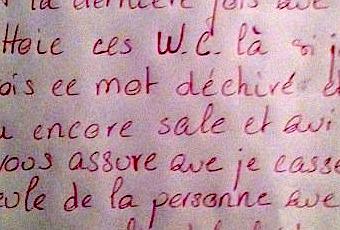 la dernière fois que
ttoie ces W.C. là si j
ois ce mot déchiré e
u encore sale et qui
vous assure que je casse
eule de la personne que